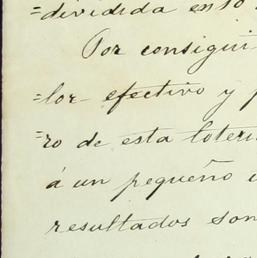 =dividida en 50
Por consigui
=lor efectivo y
=ro de esta loteri
á un pequeño
resultados son